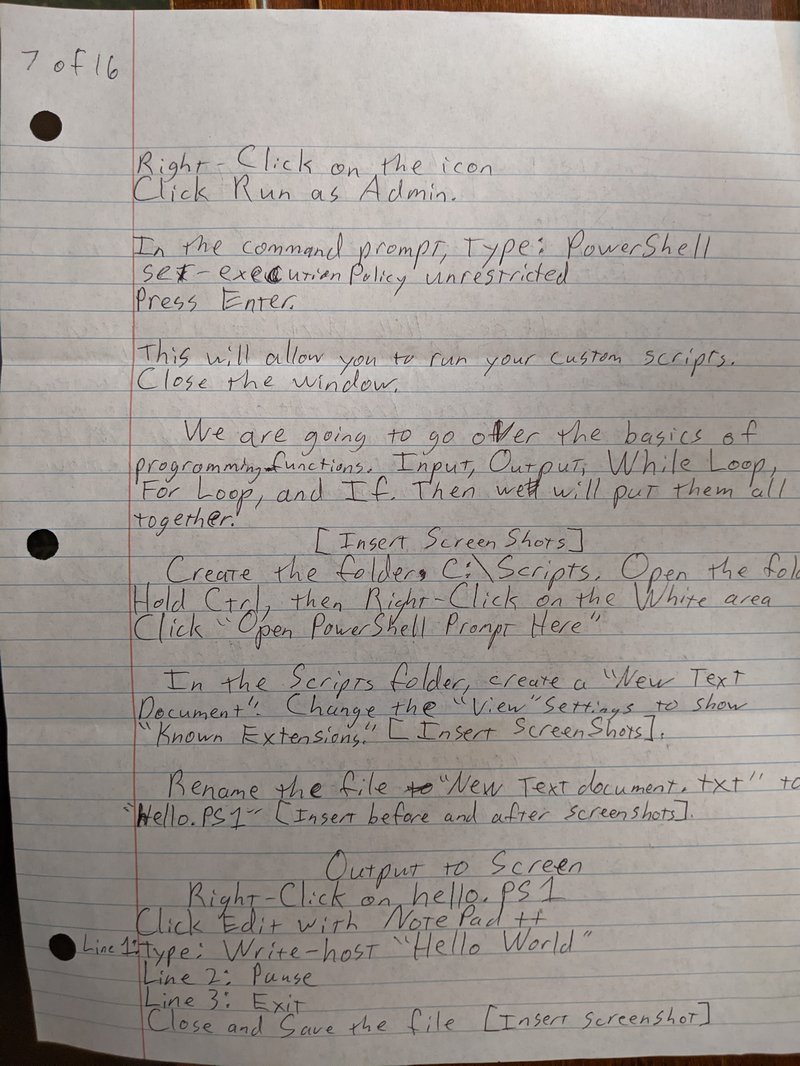 7 of 16
Right-Click on the icon
Click Run as Admin.
In the command prompt, Type: PowerShell
set-executionPolicy unrestricted
Press Enter.
This will allow you to run your custom scripts.
Close the window.
We are going to go over the basics of
programming functions. Input, Output, While Loop,
For Loop, and If. Then we will put them all
together.
[Insert Screen Shots]
Create the folder C:\Scripts. Open the fol
Hold Ctrl, then Right-Click on the White area
Click "Open PowerShell Prompt Here"
In the Scripts folder, create a "New Text
Document". Change the "View" Settings to show
"Known Extensions." [Insert ScreenShots].
Rename the file "New Text document.txt" to
"Hello.PS1" [Insert before and after screenshots].
Output to Screen
Right-Click on hello.PS1
Click Edit with NotePad ++
Line 1: Type: Write-host "Hello World"
Line 2: Pause
Line 3: Exit
Close and Save the file [Insert screenshot]